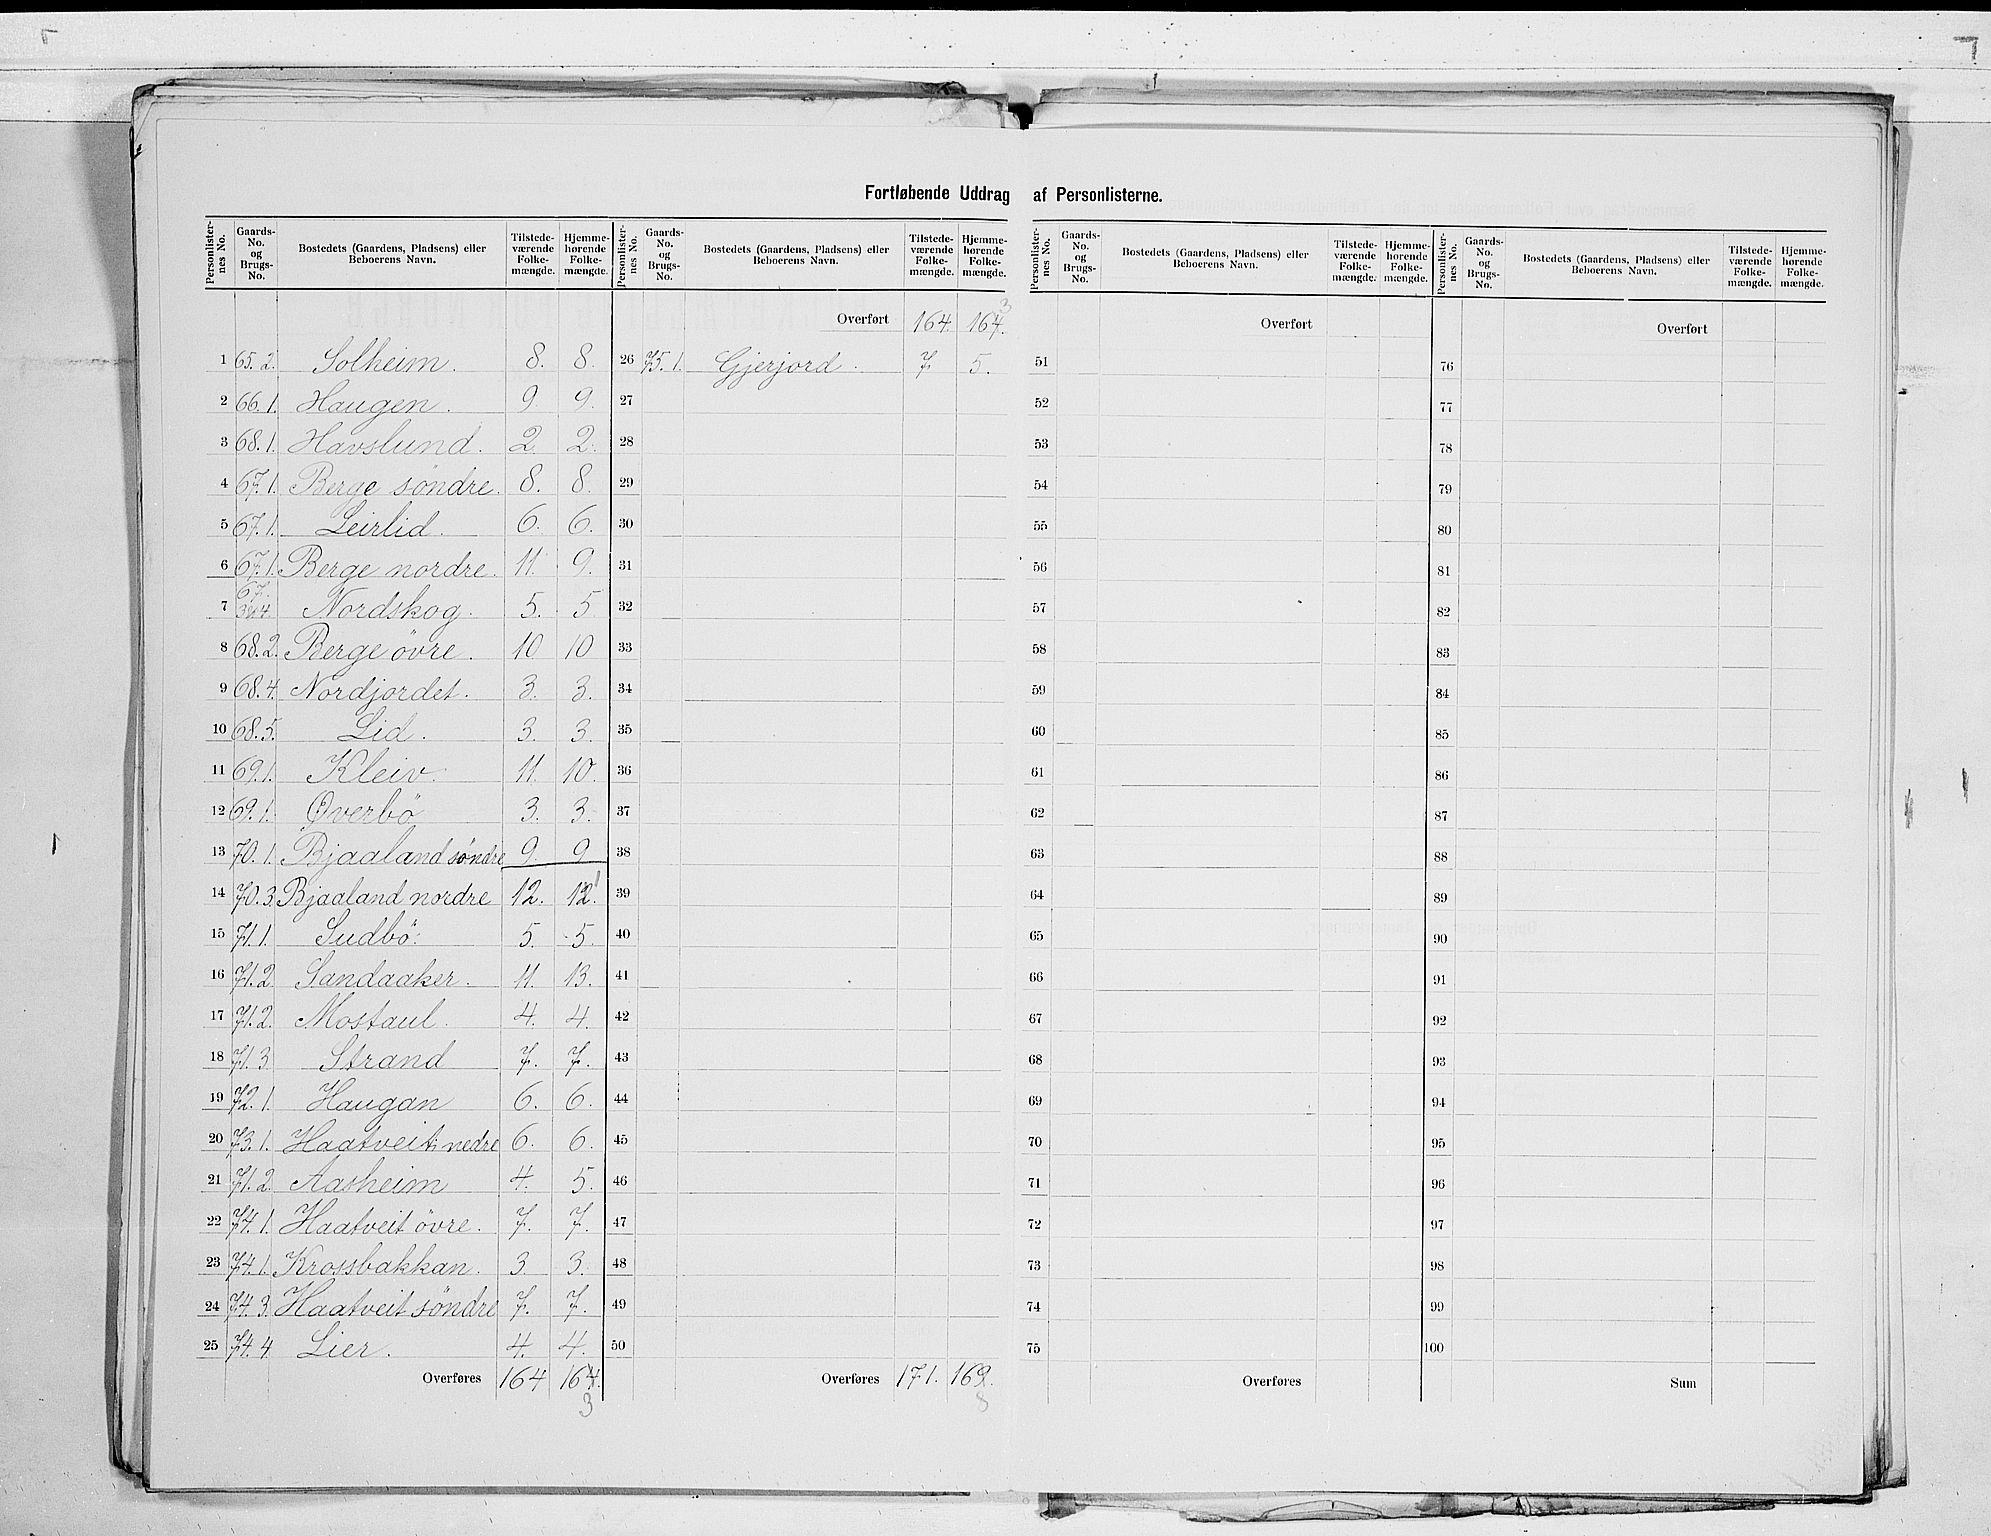 Fortløbende Uddrag af Personlisterne.
Personlister-nes No. Gaards-No. og Brugs-No. Bostedets (Gaardens, Pladsens) eller Beboerens Navn. Tilstede-værende Folke-mængde. Hjemme-hørende Folke-mængde.
1 65. 2. Solheim. 8. 8.
2 66. 1. Haugen. 9. 9.
3 68. 1. Havslund. 2. 2.
4 67. 1. Berge söndre. 8. 8.
5 67. 1. Leirlid. 6. 6.
6 67. 1. Berge nordre. 11. 9.
7 67. 3og4. Nordskog. 5. 5
8 68. 2. Berge övre. 10 10
9 68. 4. Nordjordet. 3. 3.
10 68. 5. Lid. 3. 3.
11 69. 1. Kleiv. 11. 10.
12 69. 1. Øverbö 3. 3.
13 70. 1. Bjaaland söndre 9. 9
14 70. 3. Bjaaland nordre 12. 12. 1
15 71. 1. Sudbö. 5. 5.
16 71. 2 Sandaaker. 11. 13.
17 71. 2. Mostaul. 4. 4.
18 71. 3 Strand 7. 7.
19 72. 1. Haugan 6. 6.
20 73. 1. Haatveit, nedre 6. 6.
21 71. 2. Aasheim 4. 5.
22 74. 1. Haatveit övre. 7. 7.
23 74. 1. Krossbakkan. 3. 3.
24 74. 3. Haatveit söndre 7. 7.
25 74. 4 Lier. 4. 4.
Overføres 164 164. 3
Personlister-nes No. Gaards-No. og Brugs-No. Bostedets (Gaardens, Pladsens) eller Beboerens Navn. Tilstede-værende Folke-mængde. Hjemme-hørende Folke-mængde.
Overført 164. 164. 3
26 75. 1. Gjerjord. 7 5.
27
28
29
30
31
32
33
34
35
36
37
38
39
40
41
42
43
44
45
46
47
48
49
50
Overføres 171. 169. 8
Personlister-nes No. Gaards-No. og Brugs-No. Bostedets (Gaardens, Pladsens) eller Beboerens Navn. Tilstede-værende Folke-mængde. Hjemme-hørende Folke-mængde.
Overført
51
52
53
54
55
56
57
58
59
60
61
62
63
64
65
66
67
68
69
70
71
72
73
74
75
Overføres
Personlister-nes No. Gaards-No. og Brugs-No. Bostedets (Gaardens, Pladsens) eller Beboerens Navn. Tilstede-værende Folke-mængde. Hjemme-hørende Folke-mængde.
Overført
76
77
78
79
80
81
82
83
84
85
86
87
88
89
90
91
92
93
94
95
96
97
98
99
100
Sum